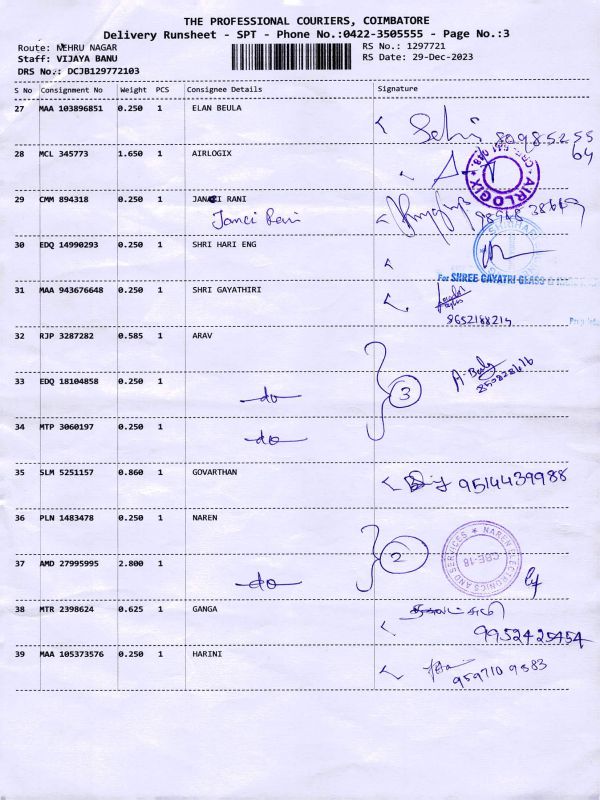 THE PROFESSIONAL COURIERS, COIMBATORE
Delivery Runsheet - SPT - Phone No.:0422-3505555 - Page No.:3
Route: NEHRU NAGAR RS No.: 1297721
Staff: VIJAYA BANU RS Date: 29-Dec-2023
DRS No.: DCJB129772103
S No Consignment No Weight PCS Consignee Details Signature
27 MAA 103896851 0.250 1 ELAN BEULA
28 MCL 345773 1.650 1 AIRLOGIX
AIRLOGIX
29 CMM 894318 0.250 1 JANACI RANI
Janci Rani
30 EDQ 14990293 0.250 1 SHRI HARI ENG
For SHREE GAYATRI GLASS
31 MAA 943676648 0.250 1 SHRI GAYATHIRI
8652188214
32 RJP 3287282 0.585 1 ARAV
33 EDQ 18104858 0.250 1 do 3
34 MTP 3060197 0.250 1 do
35 SLM 5251157 0.860 1 GOVARTHAN 9514439988
36 PLN 1483478 0.250 1 NAREN
NAREN ELECTRONICS AND SERVICES CBE-18
37 AMD 27995995 2.800 1 do 2
38 MTR 2398624 0.625 1 GANGA
9952425454
39 MAA 105373576 0.250 1 HARINI
9597109583